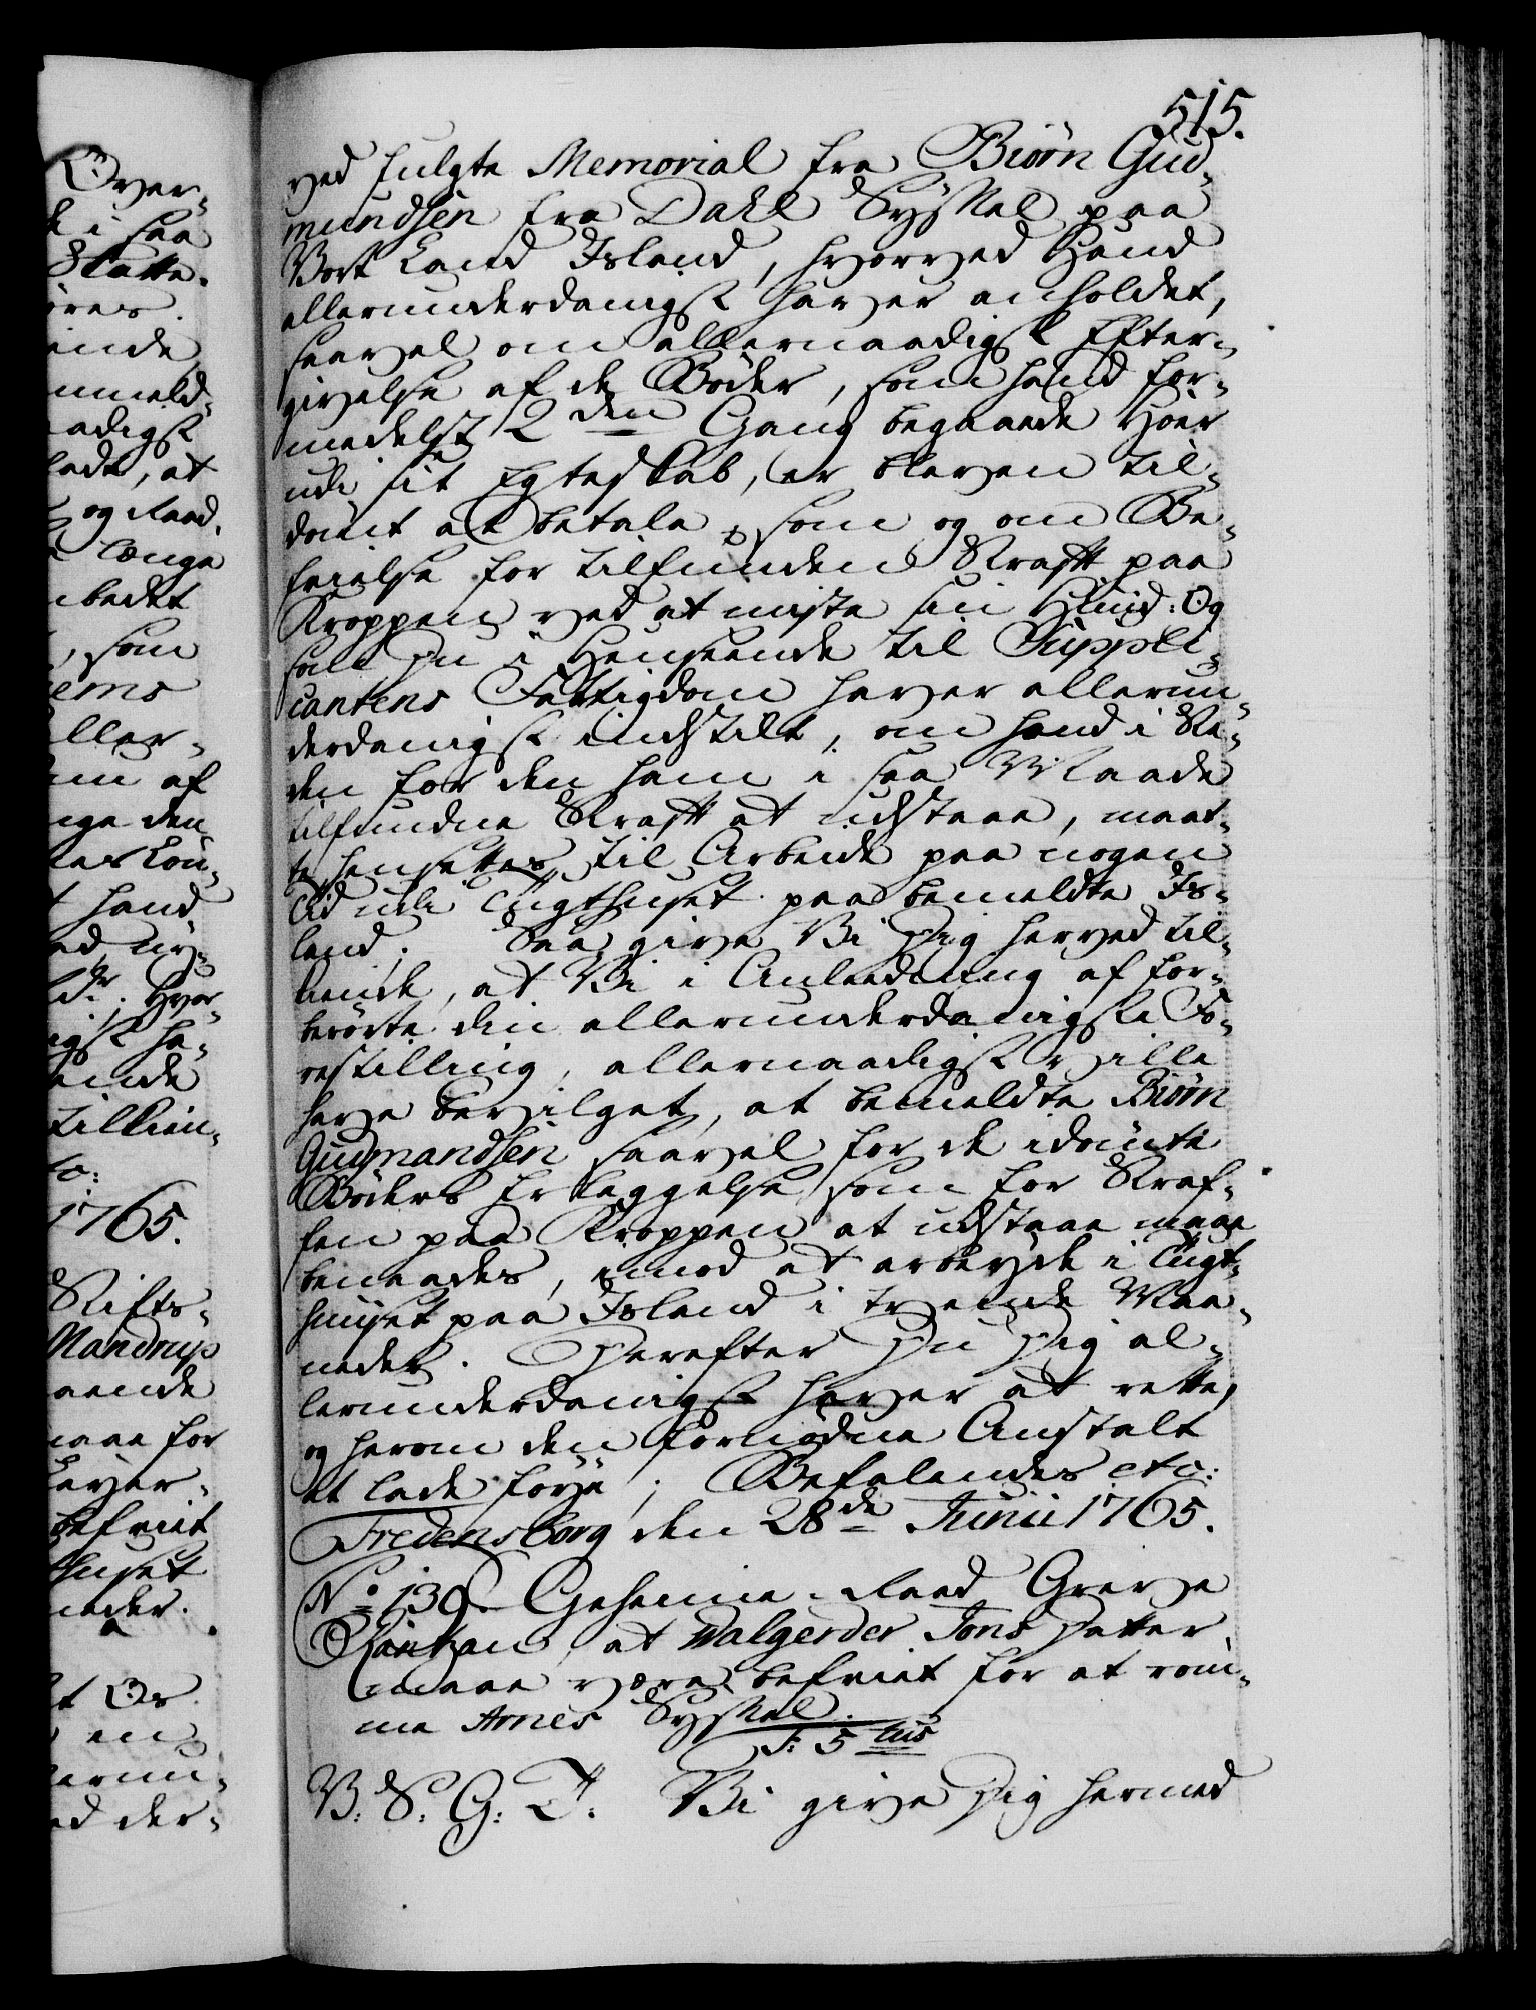 515.
ved fulgte Memorial fra Biørn Gud-
mundsen fra Dahl Syssel paa
Vort Land Island, hvorved Hand
allerunderdanigst haver anholdet,
saavel om allernaadigst Efter-
givelse af de Bøder, som hand for-
medelst 2den Gang begaaede Hoer
udi sit Egteskab, er bleven til-
dømt at betale, som og om Be-
frielse for tilfunden Straff paa
Kroppen ved at miste sin Huud: Og
som Du i Henseende til Suppli-
cantens Fattigdom haver allerun-
derdanigst indstilt, om hand i Ste-
den for den ham i saa Maade
tilfundne Straff at udstaae, maat-
te hensettes til Arbeide paa nogen
Tid udi Tugthuset paa bemeldte Is-
land; Saa give Vi Dig herved til-
kiende, at Vi i Anleedning af for-
berørte din allerunderdanigste Fo-
restilling, allernaadigst ville
have bevilget, at bemeldte Biørn
Gudmandsen saavel for de idømte
Bøders Erleggelse, som for Straf-
fen paa Kroppen at udstaae maae
benaades, imod at arbeyde i Tugt-
huuset paa Island i tvende Maa-
neder. Derefter Du Dig al-
lerunderdanigst haver at rette,
og herom den fornødne Anstalt
at lade føye; Befalendes etc:
Fredensborg den 28de Junii 1765.
No 139. Geheime-Raad Greve
Rantzau, at Walgerder Jons Datter
maae være befriet for at røm-
me Arnes Syssel.
T: 5tus
V: S: G: T: Vi give Dig hermed